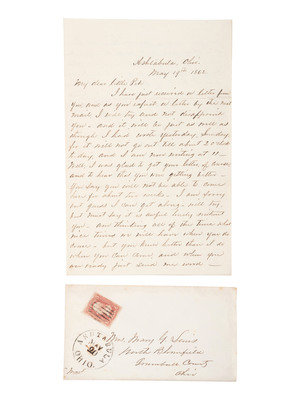 Ashtabula, Ohio.
May 19th 1862
My dear
I have just received a letter from
you and as you expect a letter by the next
mail I will try and not disappoint
you - and it will be just as well as
though I had wrote yesterday, Sunday
for it will not go out till about 2 o'clock
to day, and I am now writing at 11 -
Well, I was glad to get your letter of
and to hear that you are getting better -
You say you will not be able to come
home for about six weeks - I am sorry
but guess I can get along - will try
but must say it is awful lonely without
you. Am thinking all of the time what
nice times we will have when you do
come - but you know better than I do
when you can come, and when you
are ready just send me word -
ASHTABULA
MAY
20
OHIO
Mrs. Mary G.
North Bloomfield
Trumbull County
Ohio